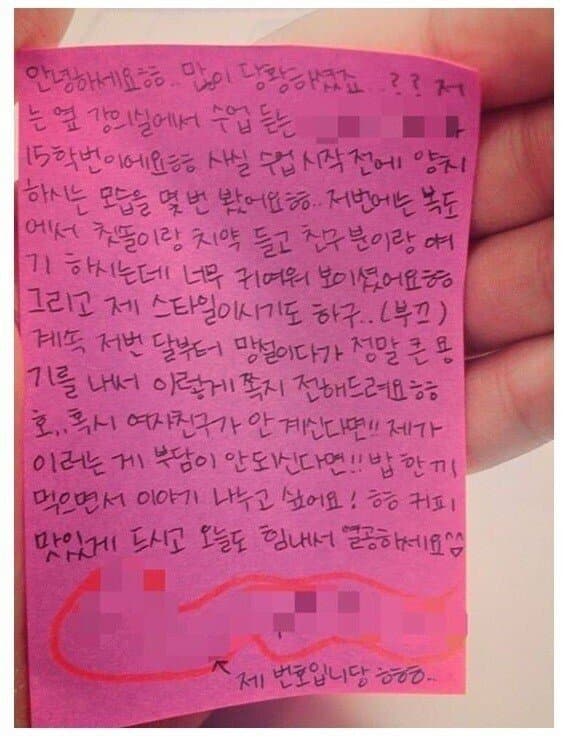 안녕하세요ㅎㅎ.. 많이 당황하셨죠..?? 저
는 옆 강의실에서 수업 듣는
15학번이에요ㅎㅎ 사실 수업 시작 전에 양치
하시는 모습을 몇 번 봤어요ㅎㅎ.. 저번에는 복도
에서 칫똘이랑 치약 들고 친구분이랑 얘
기 하시는데 너무 귀여워 보이셨어요ㅎㅎ
그리고 제 스타일이시기도 하구..(부끄)
계속 저번 달부터 망설이다가 정말 큰 용
기를 내서 이렇게 쪽지 전해드려요ㅎㅎ
호,.혹시 여자친구가 안 계신다면!! 제가
이러는 게 부담이 안되신다면!! 밥 한 끼
먹으면서 이야기 나누고 싶어요! ㅎㅎ 커피
맛있게 드시고 오늘도 힘내서 열공하세요^^
제 번호입니당 ㅎㅎㅎ..